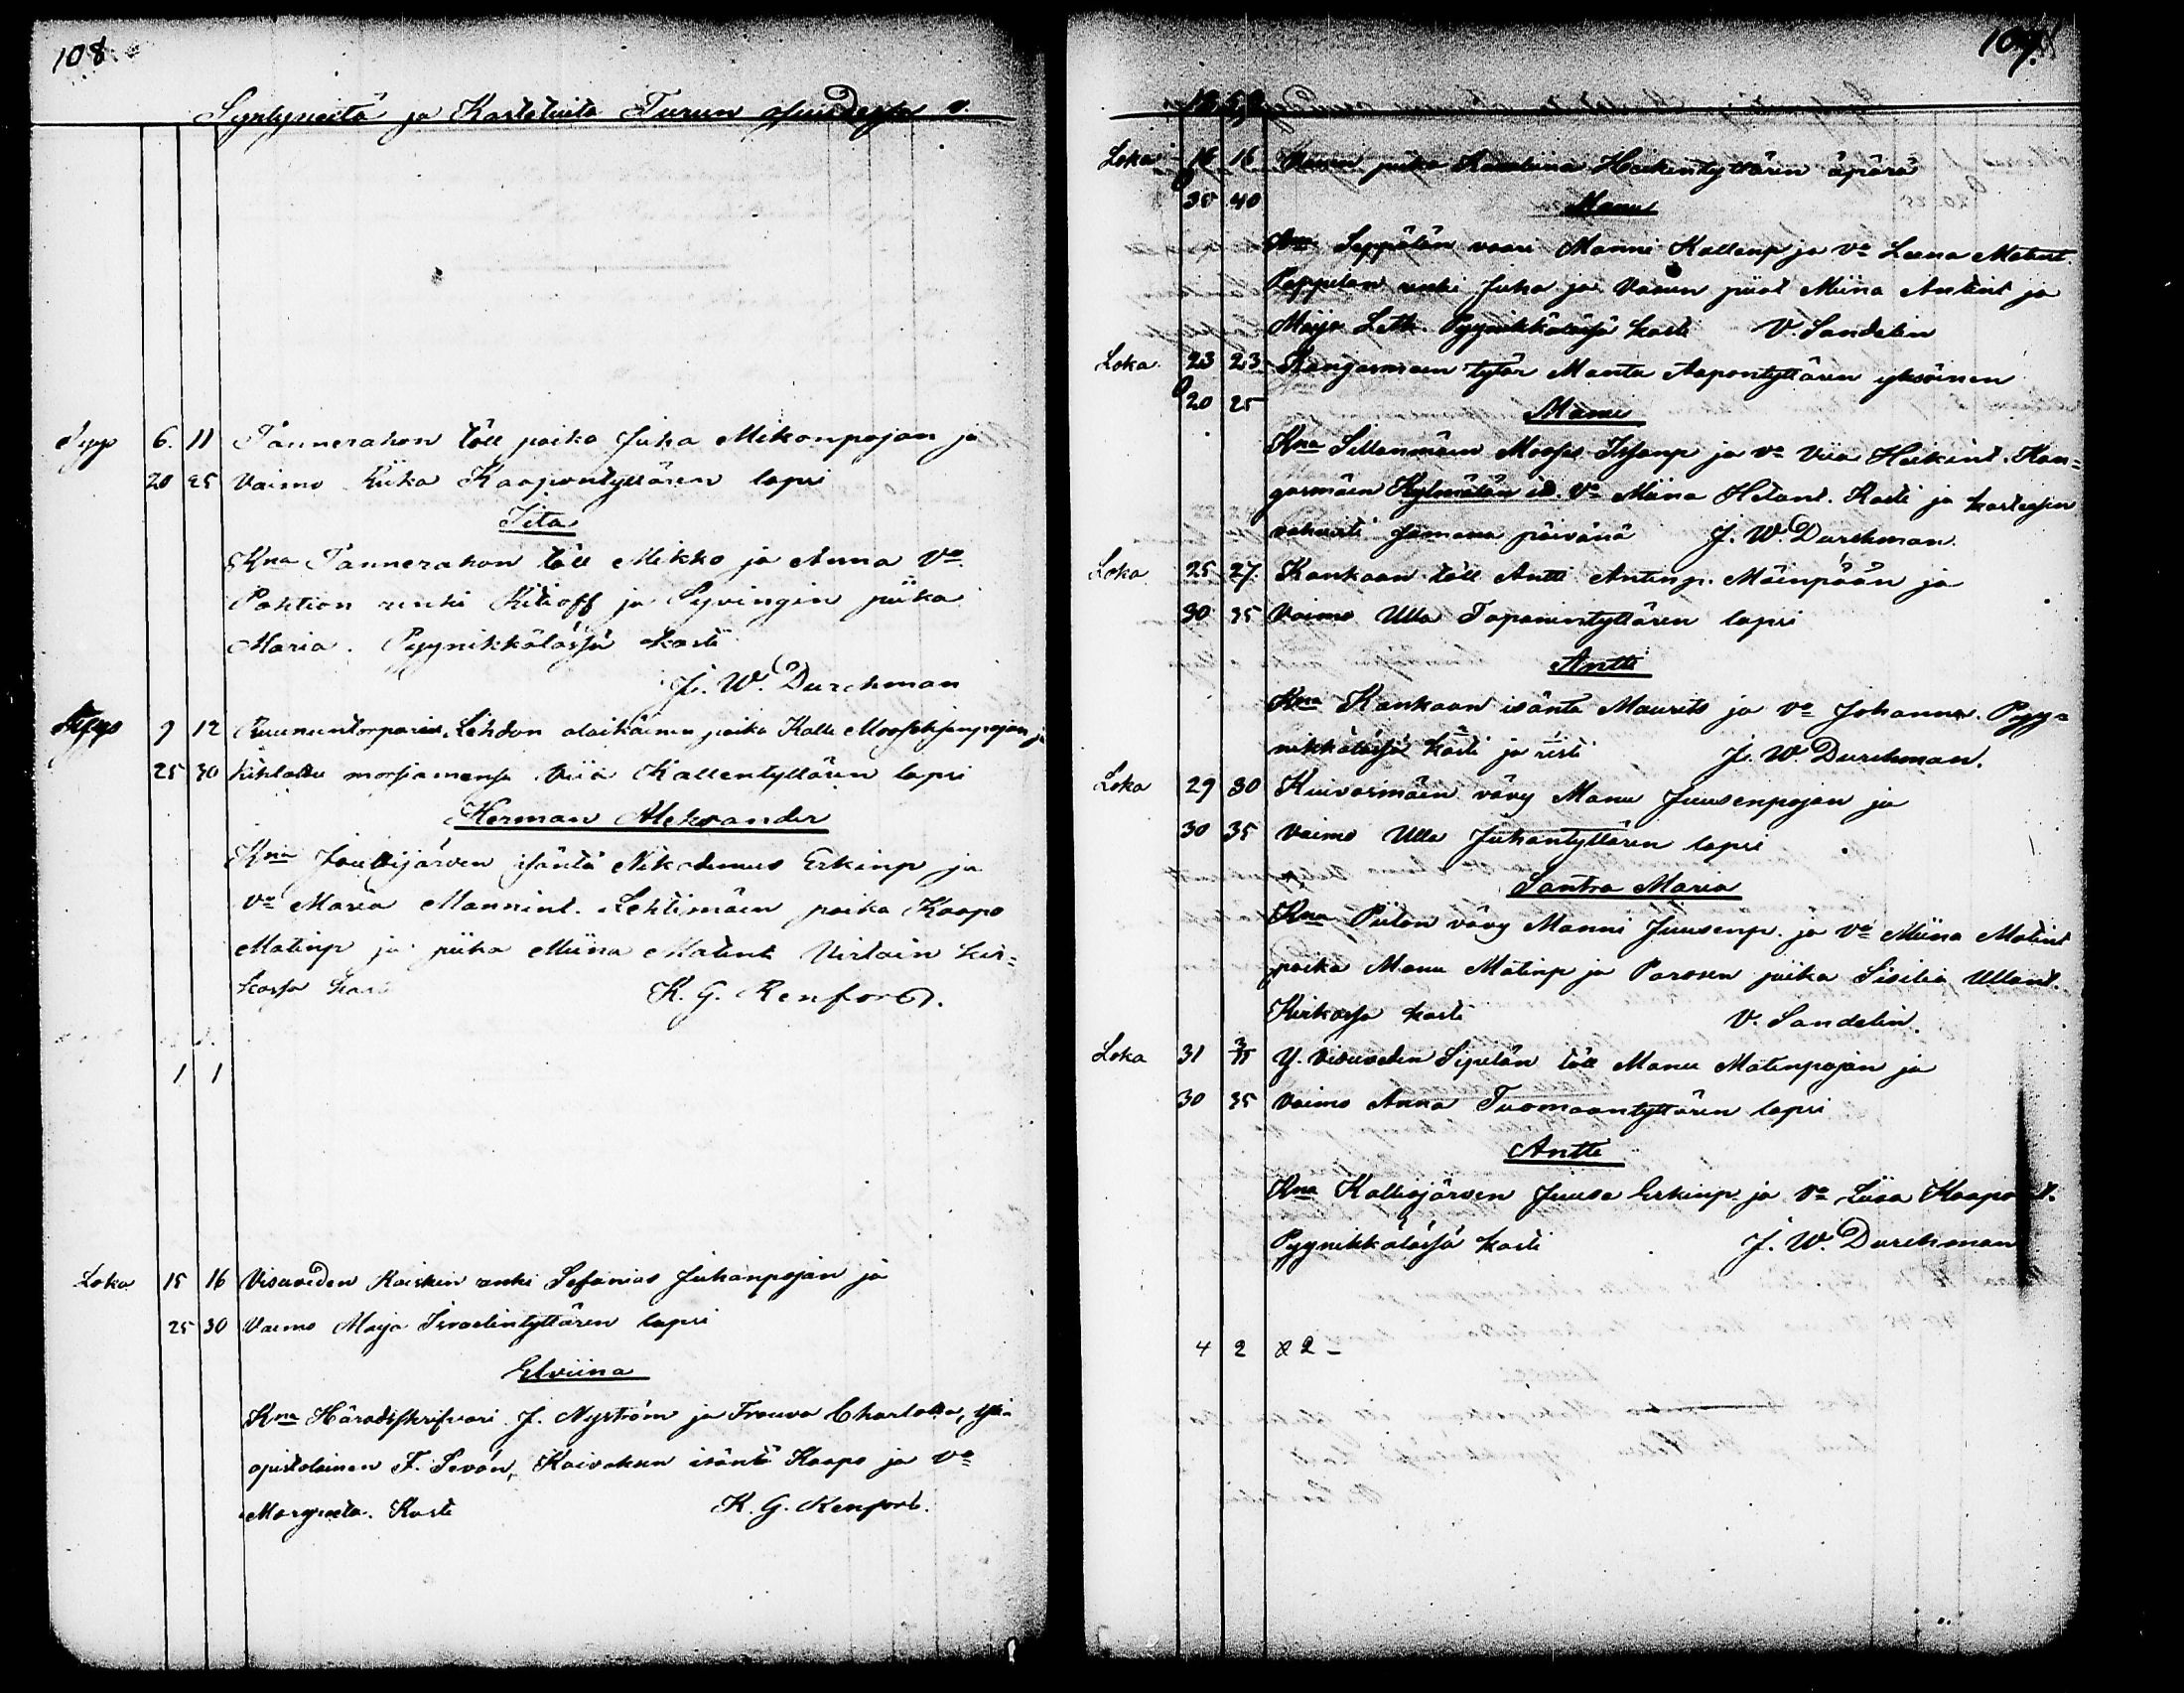 108.
Syntyneitä ja Kastetuita Turun
Syys 6. 11 Tannerahon töll poika Juha Mikonpojan ja
20 25 Vaimo Kaapontyttären lapsi
Iita
Kna Tannerahon töll Mikko ja Anna Vo
Pohtion renki ja Syvingin piika
Maria. Pyynikkälässä kasti
J. W. Durchman
Syys 9 12 Ruununtorpparin Lehdon alaikäinen poika Kalle
25 30 kihlattu morsiamensa Viia Kallentyttären lapsi
Herman Aleksander
Kna isäntä Nikodemus Erkinp ja
Vo Maria Mannint. Lehtimäen poika Kaapo
Matinp ja piika Miina Matint Virtain kir=
kossa kasti K. G. Renfors.
1 1
Loka 15 16 Visuveden Koiskin renki Sefanias Juhanpojan ja
25 30 Vaimo Maija Israelintyttären lapsi
Elviina
Kna Häradsskrifvari J. Nyström ja Frouva Charlotta,
opistolainen F. Sevón, Koivaksen isäntä Kaapo ja Vo
Margreeta. Kasti K. G. Renfors.
109.
Loka 16 16 piika Karoliina Heikintyttären äpärä
35 40 Manu
Kna Seppälän vaari Manni Kallenp ja Vo Leena Matint.
Pappilan renki Juha ja piiat Miina Antint ja
Maija Leth. Pyynikkälässä kasti V. Sandelin
Loka 23 23 Kangasmäen tytär Manta Aapontyttären yksöinen
20 25 Manu
Kna Sillanmäen Mooses ja Vo Viia Heikint. Kan=
gasmäen Miina Kasti ja kasteesen
vahvisti samana päivänä J. W. Durchman.
Loka 25 27. Kankaan töll Antti Antinp. Mäenpään ja
30 35 Vaimo Ulla Tapanintyttären lapsi
Antti
Kna Kankaan isäntä Maurits ja Vo Johanna. Pyy=
nikkälässä kasti ja risti J. W. Durchman.
Loka 29 30 Kuivasmäen vävy Manu Juusenpojan ja
30 35 Vaimo Ulla Juhantyttären lapsi
Santra Maria
Kna vävy Manni Juusenp. ja Vo Miina Matint
poika Manu Matinp ja Parosen piika Sisilia Ullant.
Kirkossa kasti V. Sandelin.
Loka 31 3/11 Y. Visuveden Sipilän töll Manu Matinpojan ja
30 35 Vaimo Anna Tuomaantyttären lapsi
Antti
Kna Kallojärven Juuse Erkinp ja Vo Liisa Kaapont.
Pyynikkälässä kasti J. W. Durchman
4 2 & 2 –